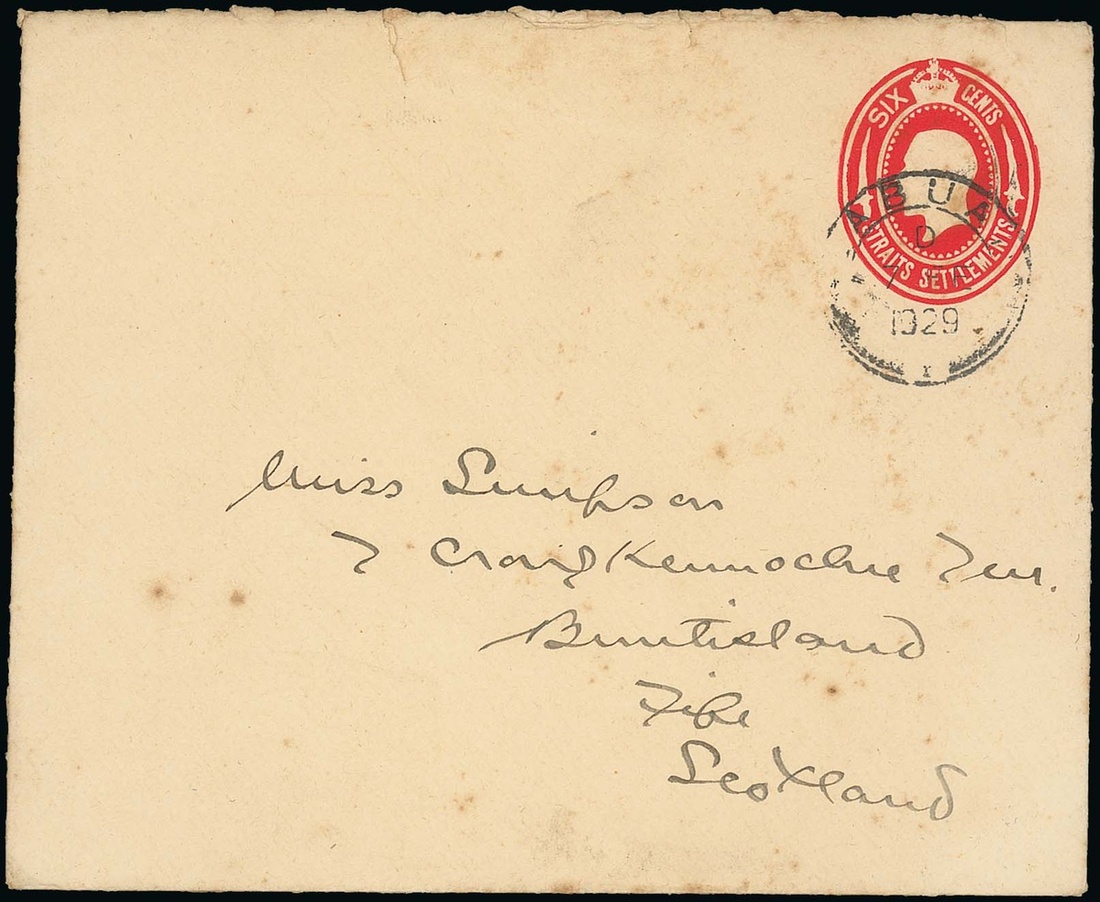 SIX CENTS
STRAITS SETTLEMENTS
LABUAN
D
7
1929
Miss Simpson
7 Craigkennochie Terr.
Burntisland
Fife
Scotland